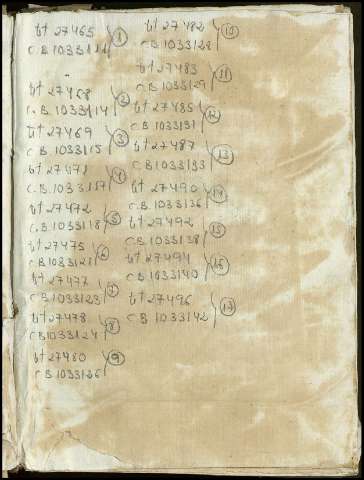 bt 27465
C.B 1033111 1
bt 27468
C.B 1033114 2
bt 27469
C.B 1033115 3
bt 27471
C.B 1033117 4
bt 27472
C.B 1033118 5
bt 27475
C.B 1033121 6
bt 27477
C B 1033123 7
bt 27478
C B 1033124 8
bt 27480
C B 1033126 9
bt 27482
C B 1033128 10
bt 27483
C B 1033129 11
bt 27485
C.B 1033131 12
bt 27487
C.B 1033133 13
bt 27490
C.B 1033136 14
bt 27492
C.B 1033138 15
bt 27494
C B 1033140 16
bt 27496
C B 1033142 17